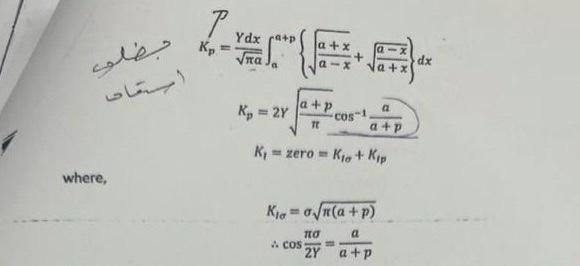 P
K_p = Ydx/√πa ∫_a^{a+p} {√(a + x)/(a − x) + √(a − x)/(a + x)} dx
K_p = 2Y √(a + p)/π cos⁻¹ a/(a + p)
K_I = zero = K_Iσ + K_Ip
where,
K_Iσ = σ√π(a + p)
∴ cos πσ/2Y = a/(a + p)